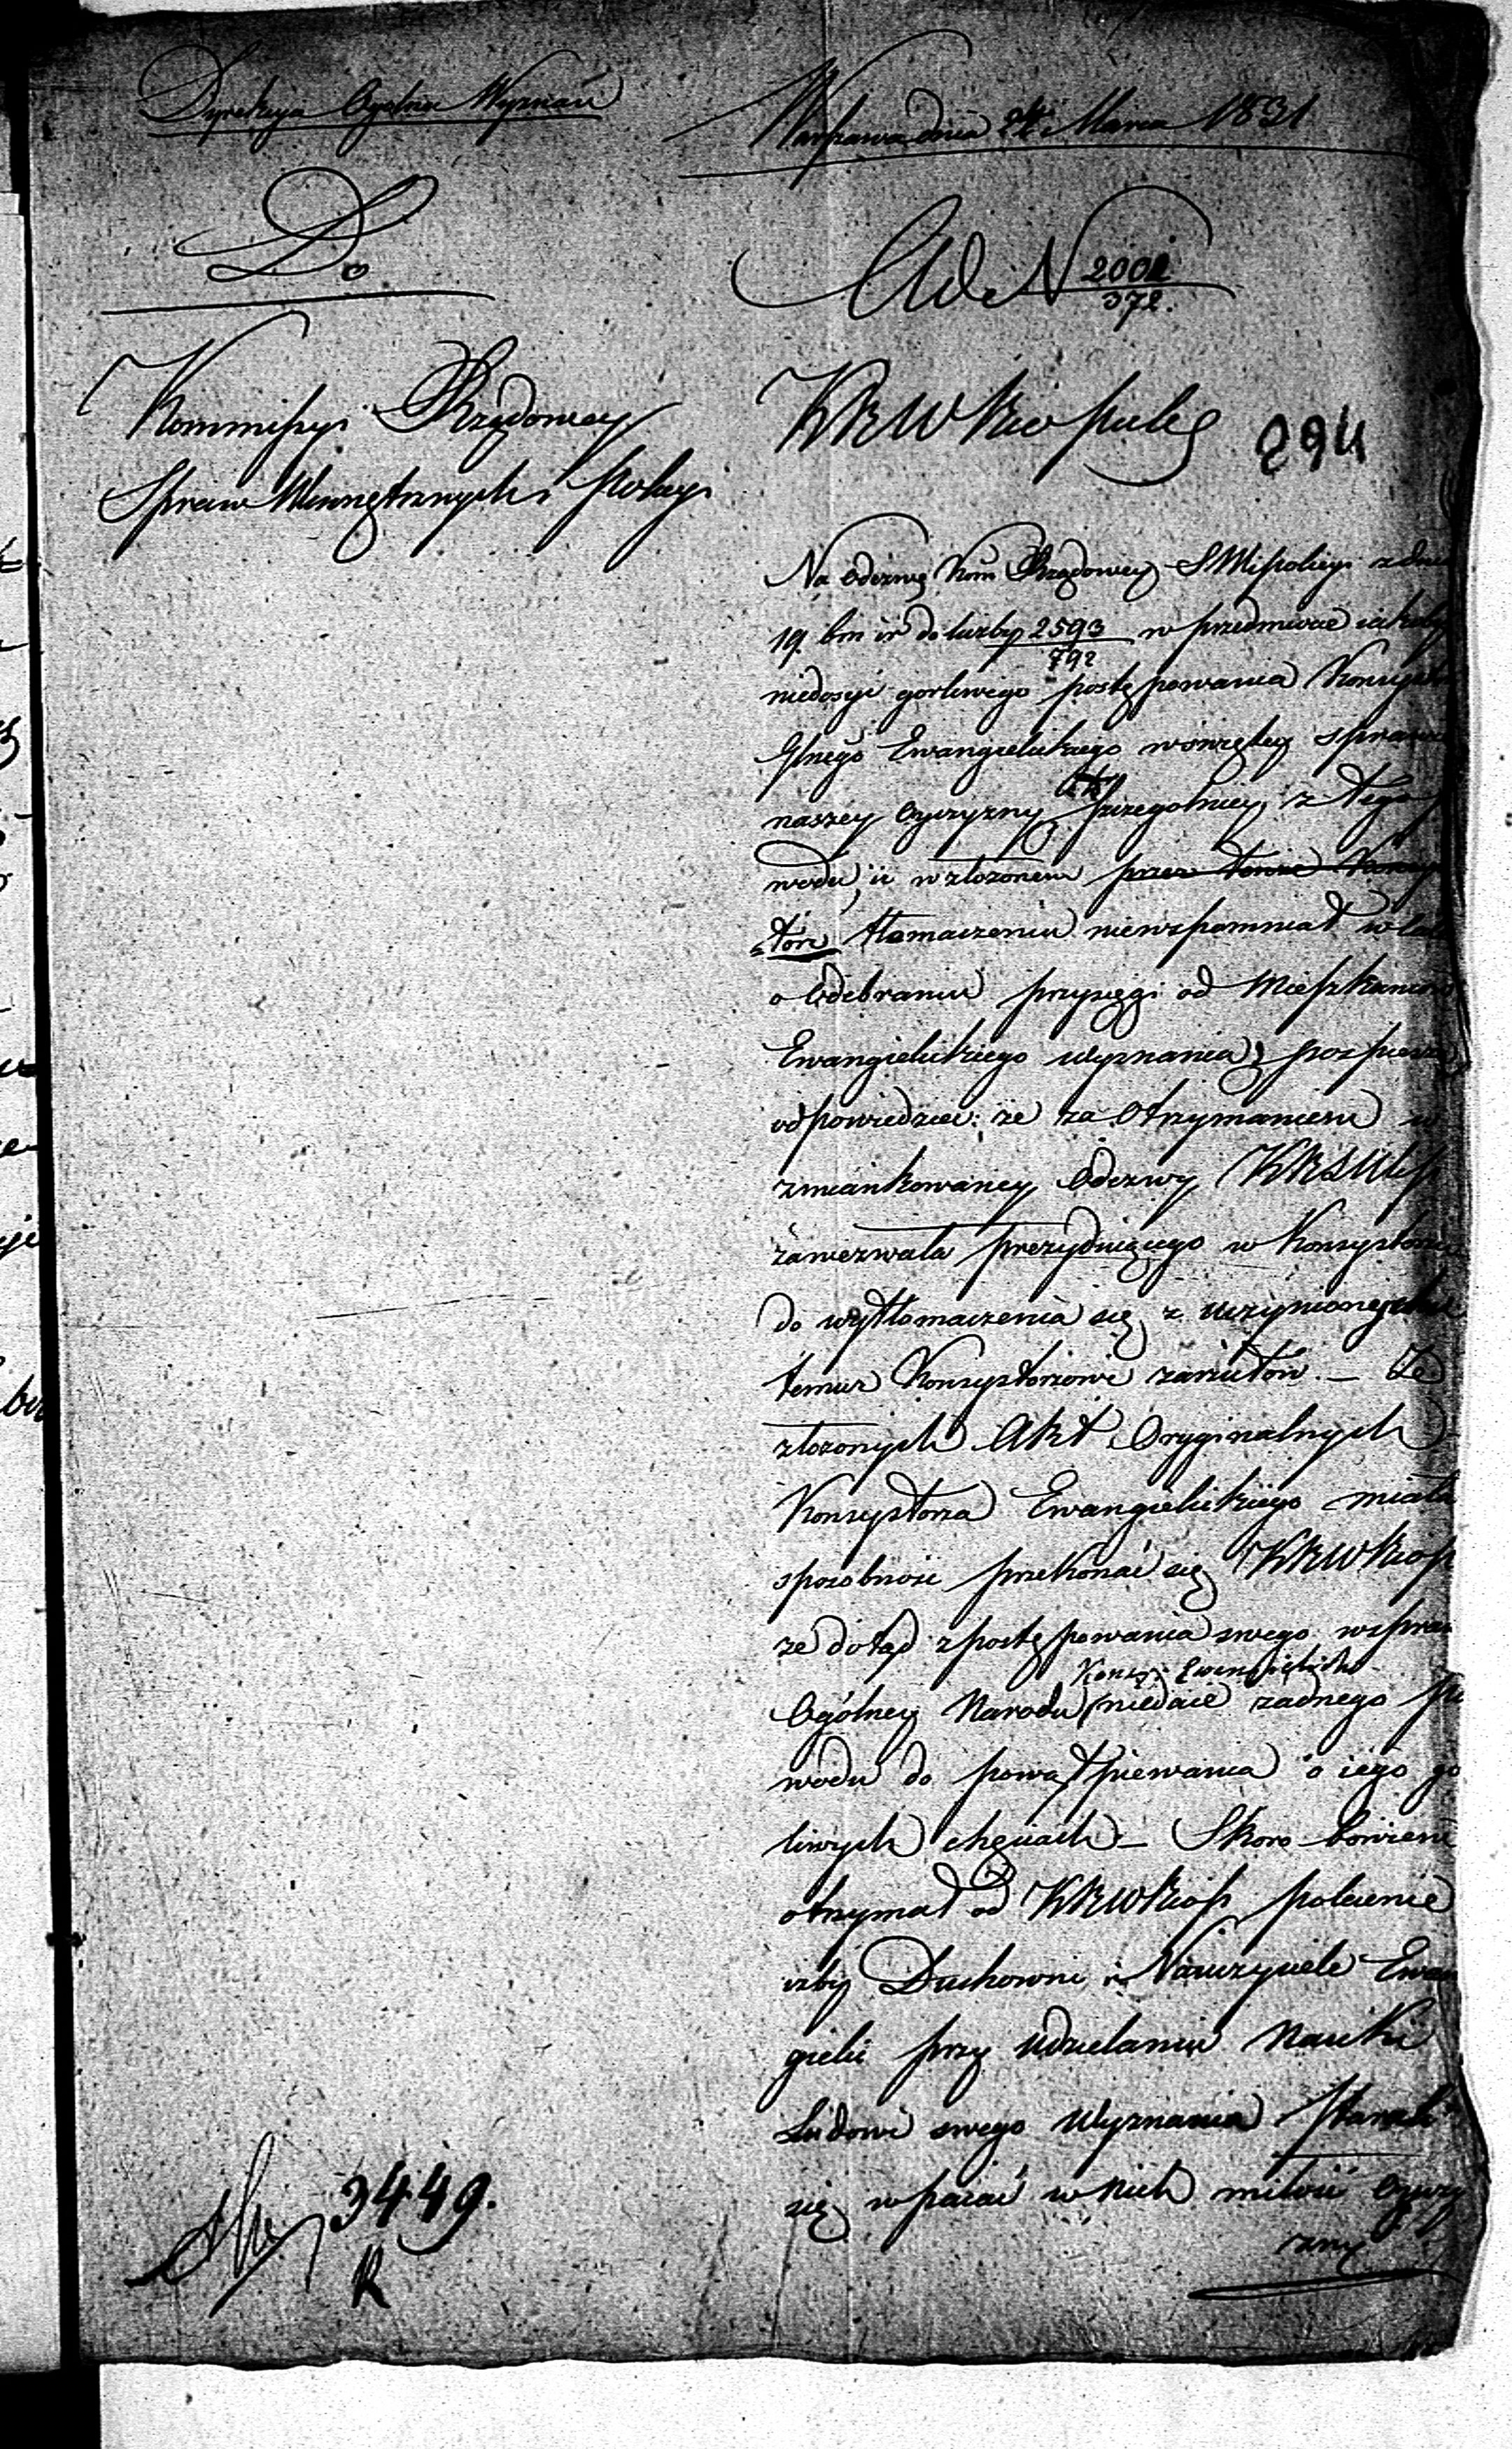 Dyrekcya Ogólna Wyznań
Warszawa dnia 24 Marca 1831
Do
Ad N 2002/372.
Kommissyi Rządowey
Spraw Wewnętrznych i Policyi
KRWRiOpubl
294
Na odezwę Kom Rządowey SWiPolicyi z dnia
19 bm ir do liczby 2593/792 w przedmiocie iakoby
niedosyć gorliwego postępowania Konsysto
Glnego Ewangelickiego w świętey sprawie
naszey Oyczyzny szczególniey z tego
wodu, iż w złożonem przez tenże Konsys
torz tłomaczeniu niewspomniał wcale
o Odebraniu przysięgi od Mieszkańców
Ewangielickiego wyznania, pospiesza
odpowiedzieć: że za Otrzymaniem w
zmiankowaney Odezwy KRSWiP
zawezwała prezyduiącego w Konsystorzu
do wytłomaczenia się z uczynionych
temuż Konsystorzowi zarzutów. — Ze
złożonych Akt Oryginalnych
Konsystorza Ewangielickiego miała
sposobność przekonać się KRWRiOP
że dotąd z postępowania swego w spraw
Konsy: Ewangielicki
Ogólney Narodu niedaie żadnego po
wodu do powątpiewania o iego go
liwych chęciach — Skoro bowiem
otrzymał od KRWRiOP polecenie
iżby Duchowni i Nauczyciele Ewan
gieliccy przy udzielaniu Nauki
Ludowi swego Wyznania starali
się wpaiać w nich miłość Oyczy
zny
3449.
R